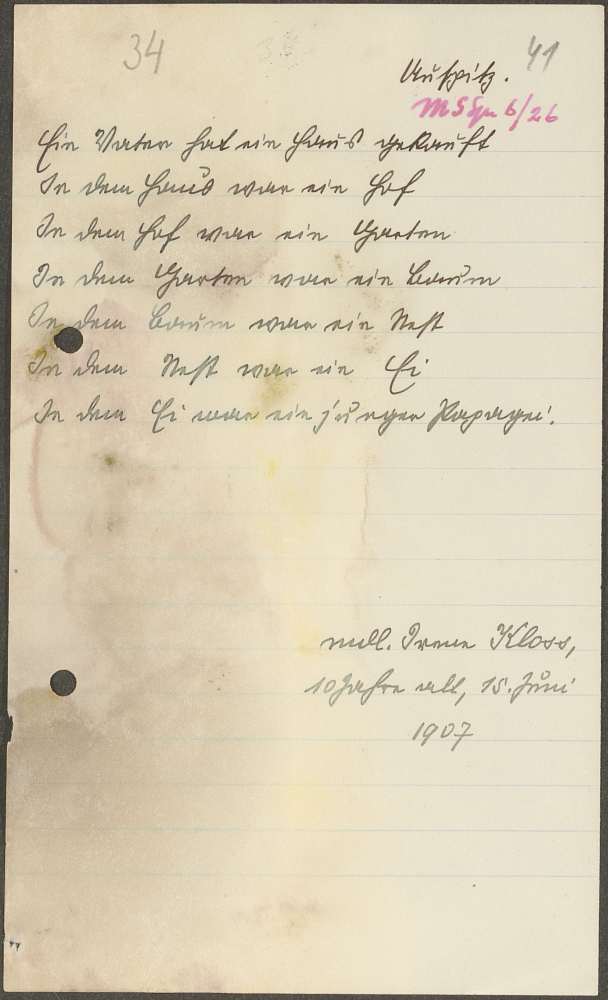 34
41
Auspitz.
MSSp 6/26
Ein Vater hat ein Haus gekauft
In dem Haus war ein Hof
In dem Hof war ein Garten
In dem Garten war ein Baum
In dem Baum war ein Nest
In dem Nest war ein Ei
In dem Ei war ein junger Papagei.
mdl. Irene Kloss,
10 Jahre alt, 15. Juni
1907